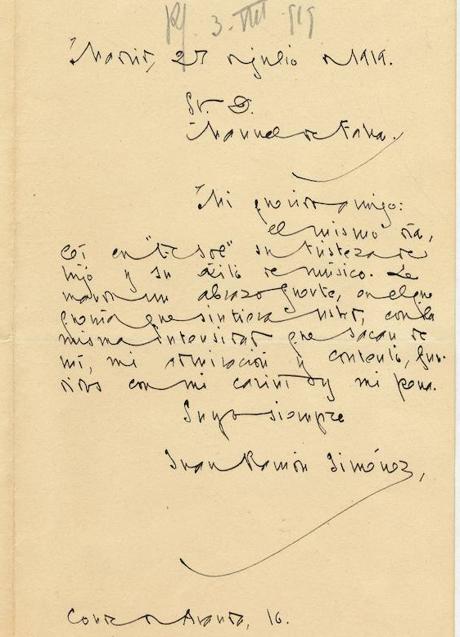 R/ 3-VIII-919
Madrid, 27 de julio de 1919.
Sr. D.
Manuel de Falla.
Mi querido amigo:
el mismo día,
leí en "El Sol" su tristeza de
hijo y su éxito de músico. Le
mando un abrazo fuerte, en el que
querría que sintiera usted, con la
misma intensidad que sacan de
mí, mi admiración y contento, fun-
didos con mi cariño y mi pena.
Suyo siempre
Juan Ramón Jiménez,
Conde de Aranda, 16.